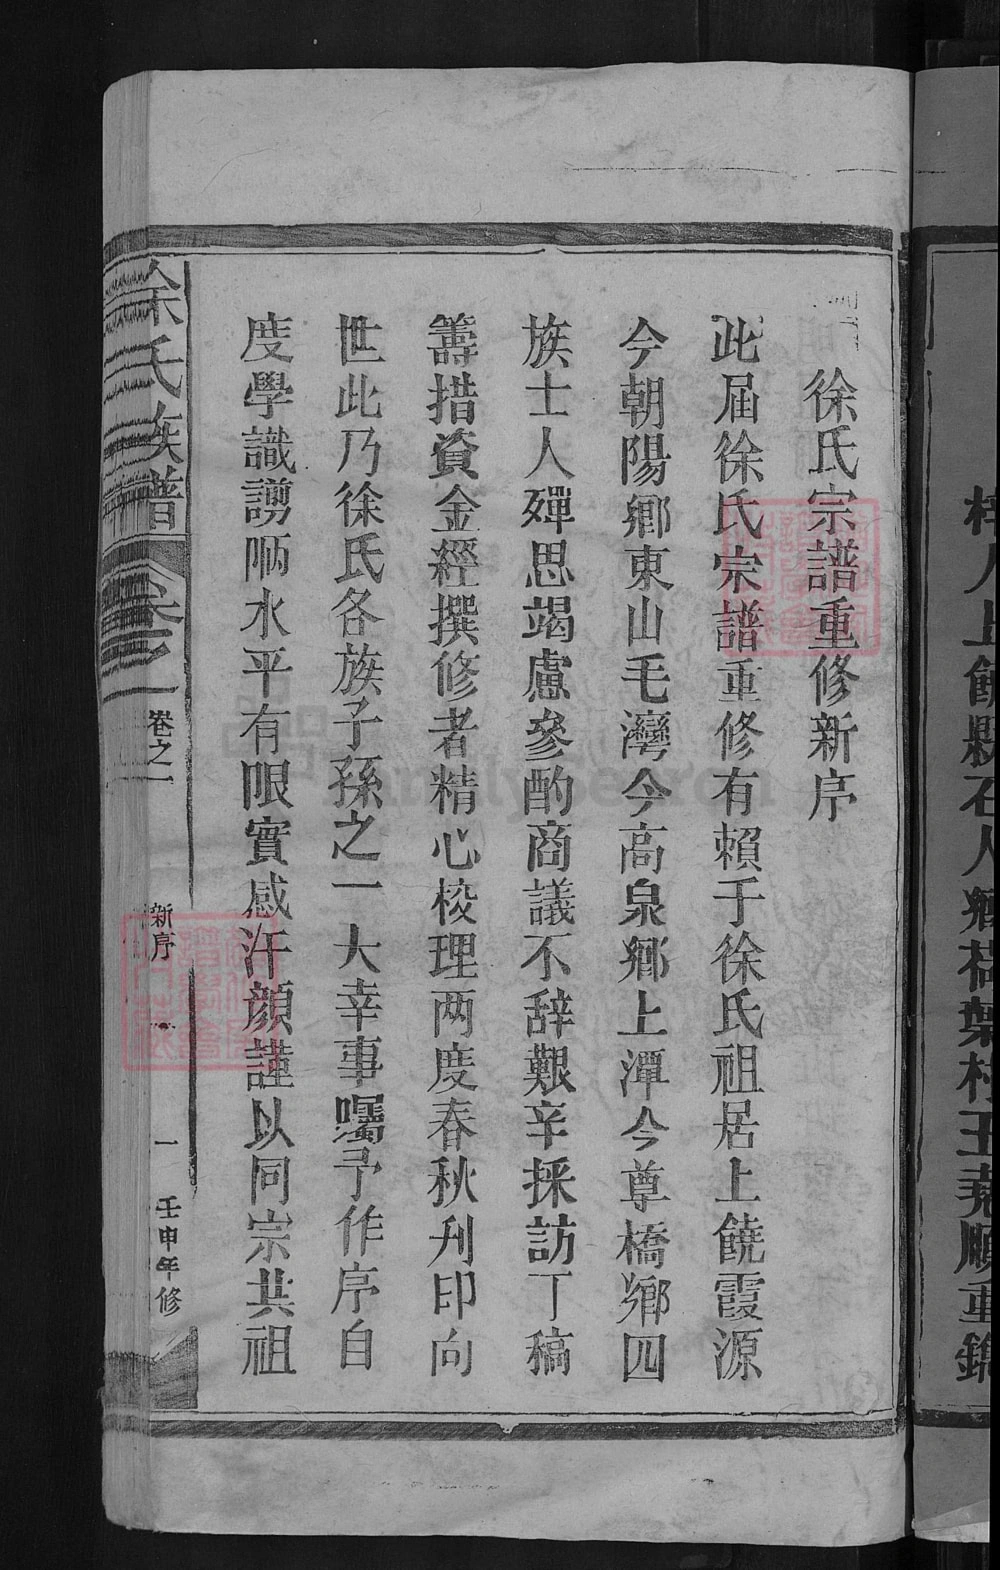 上饒縣石人鄉荷葉村王堯順重鐫
徐氏宗譜重修新序
此屆徐氏宗譜重修有賴于徐氏祖居上饒霞源
今朝陽鄉東山毛灣今高泉鄉上潭今尊橋鄉四
族士人殫思竭慮參酌商議不辞艱辛採訪丁稿
籌措資金經撰修者精心梭理两度春秋刋印向
世此乃徐氏各族子孫之一大幸事囑予作序自
度學識謭陋水平有限實感汗顔謹以同宗共祖
徐氏族譜
卷之一
新序
一
壬申年修